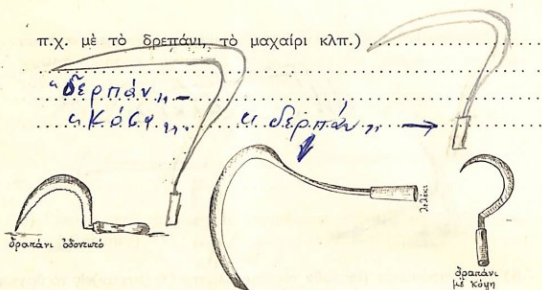 π.χ. μὲ τὸ δρεπάνι, τὸ μαχαίρι κλπ.)
"δερπάν" –
"κόσα" "δερπάν" →
λελέκι
δραπάνι ὀδοντωτό
δραπάνι
μὲ κόψη